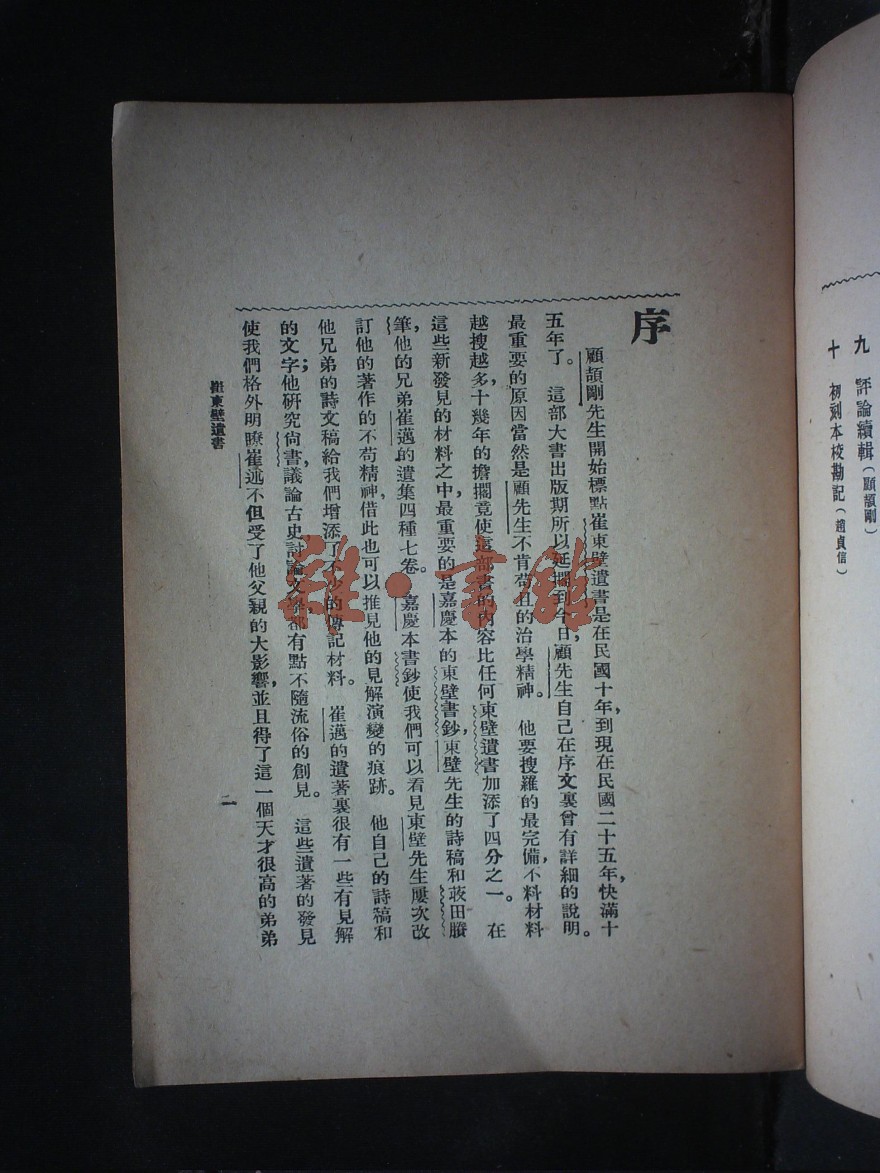 九　評論續輯（顧頡剛）
十　初刻本校勘記（趙貞信）
序
顧頡剛先生開始標點崔東壁遺書是在民國十年，到現在民國二十五年，快滿十
五年了。這部大書出版期所以延擱到今日，顧先生自己在序文裏曾有詳細的說明。
最重要的原因當然是顧先生不肯苟且的治學精神。他要搜羅的最完備，不料材料
越搜越多，十幾年的擔擱竟使這部書的內容比任何東壁遺書加添了四分之一。在
這些新發見的材料之中，最重要的是嘉慶本的東壁書鈔，東壁先生的詩稿和荍田賸
筆，他的兄弟崔邁的遺集四種七卷。嘉慶本書鈔使我們可以看見東壁先生屢次改
訂他的著作的不苟精神，借此也可以推見他的見解演變的痕跡。他自己的詩稿和
他兄弟的詩文稿給我們增添了不少的傳記材料。崔邁的遺著裏很有一些有見解
的文字；他研究尙書，議論古史，討論文學，都有點不隨流俗的創見。這些遺著的發見
使我們格外明瞭崔述不但受了他父親的大影響，並且得了這一個天才很高的弟弟
崔東壁遺書
一
雜·書館